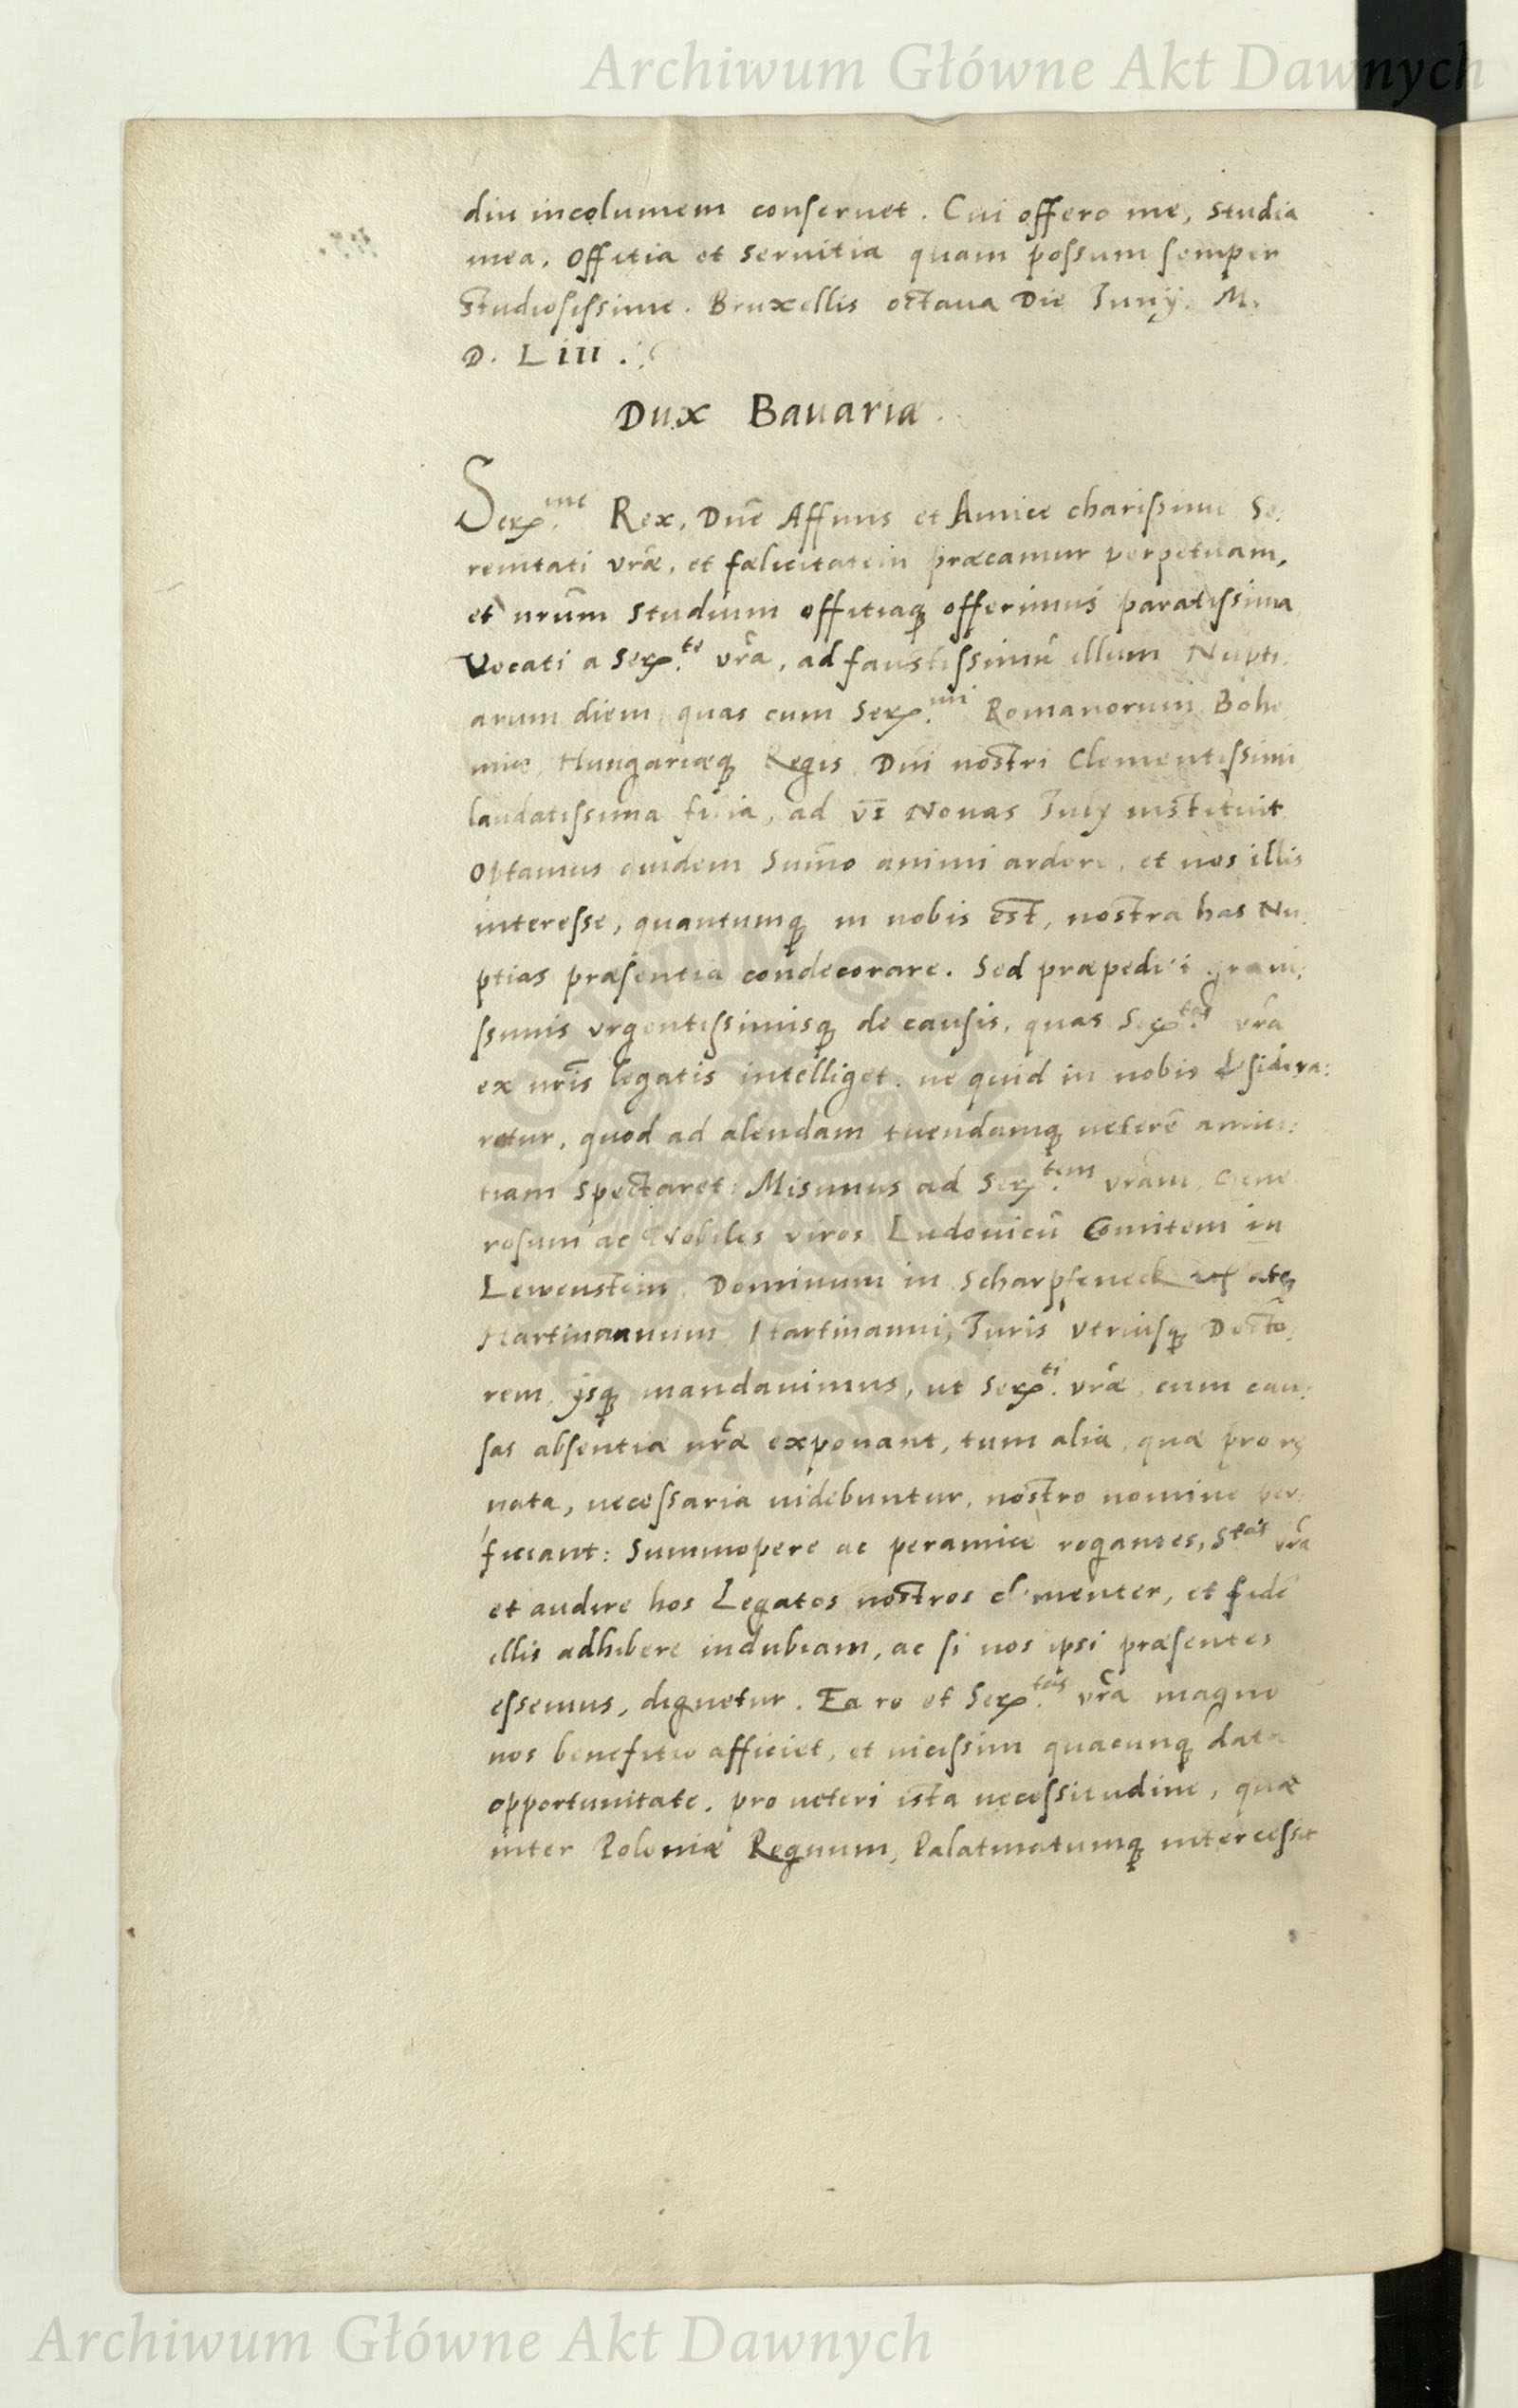 Archiwum Główne Akt Dawnych
diu incolumem conseruet. Cui offero me, studia
mea, Offitia et seruitia quam possum semper
studiosissime. Bruxellis octaua Die Iunij. M.
D. L III.
Dux Bauariæ.
Ser.me Rex, Dne Affinis et Amice charissime Se:
renitati vrae, et fælicitatem præcamur perpetuam,
et nrum studium offitiaq offerimus paratissima
Vocati a Ser.te vra, ad faustissimu illum Nupti:
arum diem, quas cum Ser.mi Romanorum Bohe
miæ, Hungariæq Regis Dni nostri Clementissimi
laudatissima filia, ad VI Nonas Iulij instituit
Optamus quidem Summo animi ardore, et nos illis
interesse, quantumq in nobis est, nostra has Nu
ptias præsentia condecorare. Sed præpediti graui:
ssimis vrgentissimisq de causis, quas Ser.tas vra
ex nris legatis intelliget. ne quid in nobis desidera:
retur, quod ad alendam tuendamq ueterē amici:
tiam spectaret: Misimus ad Ser.tem vram, Gene
rosum ac Nobiles viros Ludouicū Comitem in
Lewenstein, Dominum in Scharpfeneck atq
Hartmannum Hartmanni, Iuris vtriusq Docto:
rem, ijsq mandauimus, ut Ser.ti vræ, cum cau:
sas absentiæ nræ exponant, tum alia, quæ pro re
nata, necessaria uidebuntur, nostro nomine per:
ficiant: Summopere ac peramicè rogantes, S.tas vra
et audire hos Legatos nostros clementer, et fidē
illis adhibere indubiam, ac si nos ipsi præsentes
essemus, dignetur. Ea re et Ser.tas vra magno
nos benefitio afficiet, et uicissim quacunq data
opportunitate, pro ueteri ista necessitudine, quæ
inter Poloniæ Regnum, Palatinatumq intercessit
Archiwum Główne Akt Dawnych